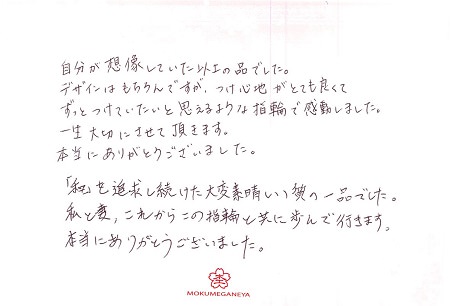 自分が想像していた以上の品でした。
デザインはもちろんですが、つけ心地がとても良くて
ずっとつけていたいと思えるような指輪で感動しました。
一生大切にさせて頂きます。
本当にありがとうございました。
「和」を追求し続けた大変素晴しい の一品でした。
私と妻、これからこの指輪と共に歩んで行きます。
本当にありがとうございました。
MOKUMEGANEYA